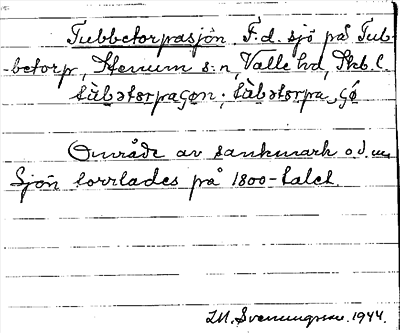 Tubbetorpasjön F.d. sjö på Tub-
-betorp, Stenum s:n, Valle hd, Skb. l.
tùbətɔrpaʃøn; tùbətɔrpa, ʃø
Område av sankmark o.d. m.
Sjön torrlades på 1800-talet.
I.M. Svenungsson. 1944.